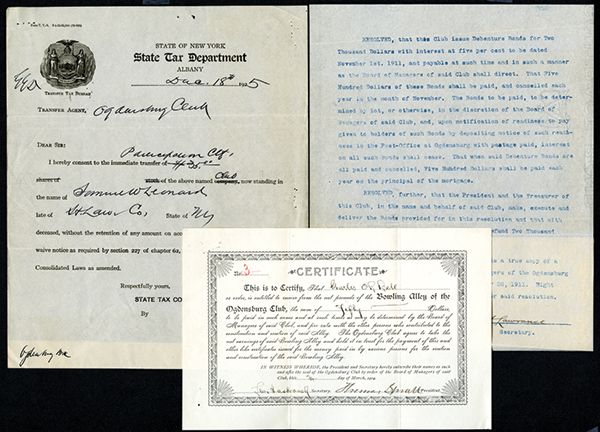 STATE OF NEW YORK
State Tax Department
ALBANY
Dec. 18th 1925
TRANSFER TAX BUREAU
TRANSFER AGENT, Ogdensburg Club
DEAR SIR:
I hereby consent to the immediate transfer of
of the above named company, now standing in
Club
the name of Samuel W Leonard
late of St Law. Co, State of NY
deceased, without the retention of any amount on
waive notice as required by section 227 of chapter 62,
Consolidated Laws as amended.
Respectfully yours,
STATE TAX CO
By
RESOLVED, that this Club issue Debenture Bonds for Two
Thousand Dollars with interest at five per cent to be dated
November 1st, 1911, and payable at such time and in such a manner
as the Board of Managers of said Club shall direct. That Five
Hundred Dollars of these Bonds shall be paid, and cancelled each
year in the month of November. The Bonds to be paid, to be deter-
mined by lot, or otherwise, in the discretion of the Board of
Managers of said Club, and, upon notification of readiness to pay
given to holders of such Bonds by depositing notice of such readi-
ness in the Post-Office at Ogdensburg with postage paid, interest
on all such Bonds shall cease. That when said Debenture Bonds are
all paid and cancelled, Five Hundred Dollars shall be paid each
year on the principal of the mortgage.
RESOLVED, further, that the President and the Treasurer of
this Club, in the name and behalf of said Club, make, execute and
deliver the Bonds provided for in this resolution and that with
refund Two Thousand
is a true copy of a
gers of the Ogdensburg
1911.
said resolution.
Secretary.
No. 3
CERTIFICATE.
This is to Certify, That Charles
or order, is entitled to receive from the net proceeds of the Bowling Alley of the
Ogdensburg Club, the sum of Fifty Dollars,
to be paid in such sums and at such times as may be determined by the Board of
Managers of said Club, and pro rata with the other persons who contributed to the
construction and creation of said Alley. The Ogdensburg Club agrees to hold the
net earnings of said Bowling Alley and hold it in trust for the payment of this and
other like certificates issued for the money paid in by various persons for the creation
and construction of the said Bowling Alley.
IN WITNESS WHEREOF, the President and Secretary hereto subscribe their names as such
and affix the seal of the Ogdensburg Club by order of the Board of Managers of said
Club, this day of March, 1904.
Secretary. President.